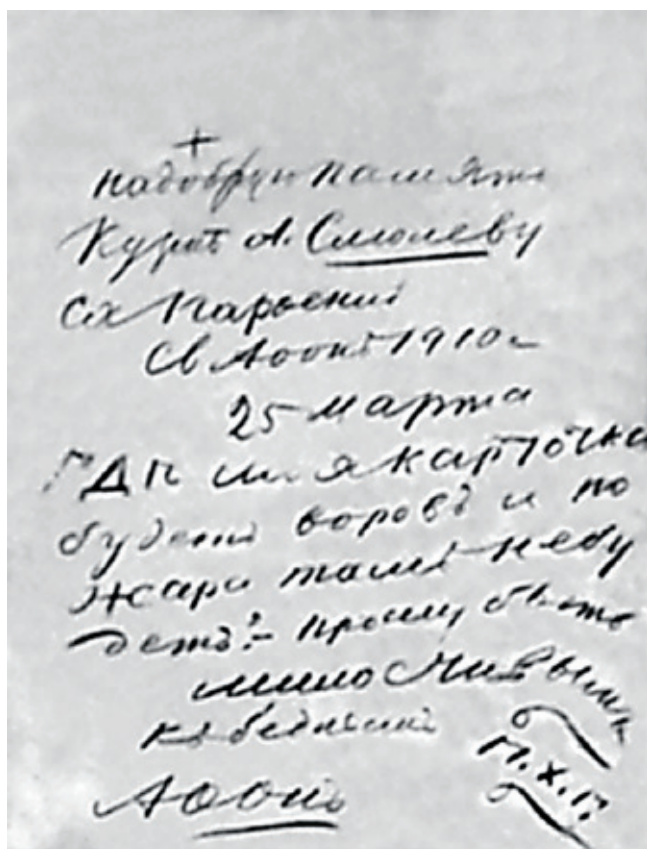 +
надобрую память
Кузмѣ А. Смолеву
Сх Карьский
Св Аѳонъ 1910 г
25 марта
ГДѢ моя карточка
будетъ воровъ и по
жара тамъ небу
детъ:- прошу быть
милоСтивымъ
къ беднымъ
Аѳонъ